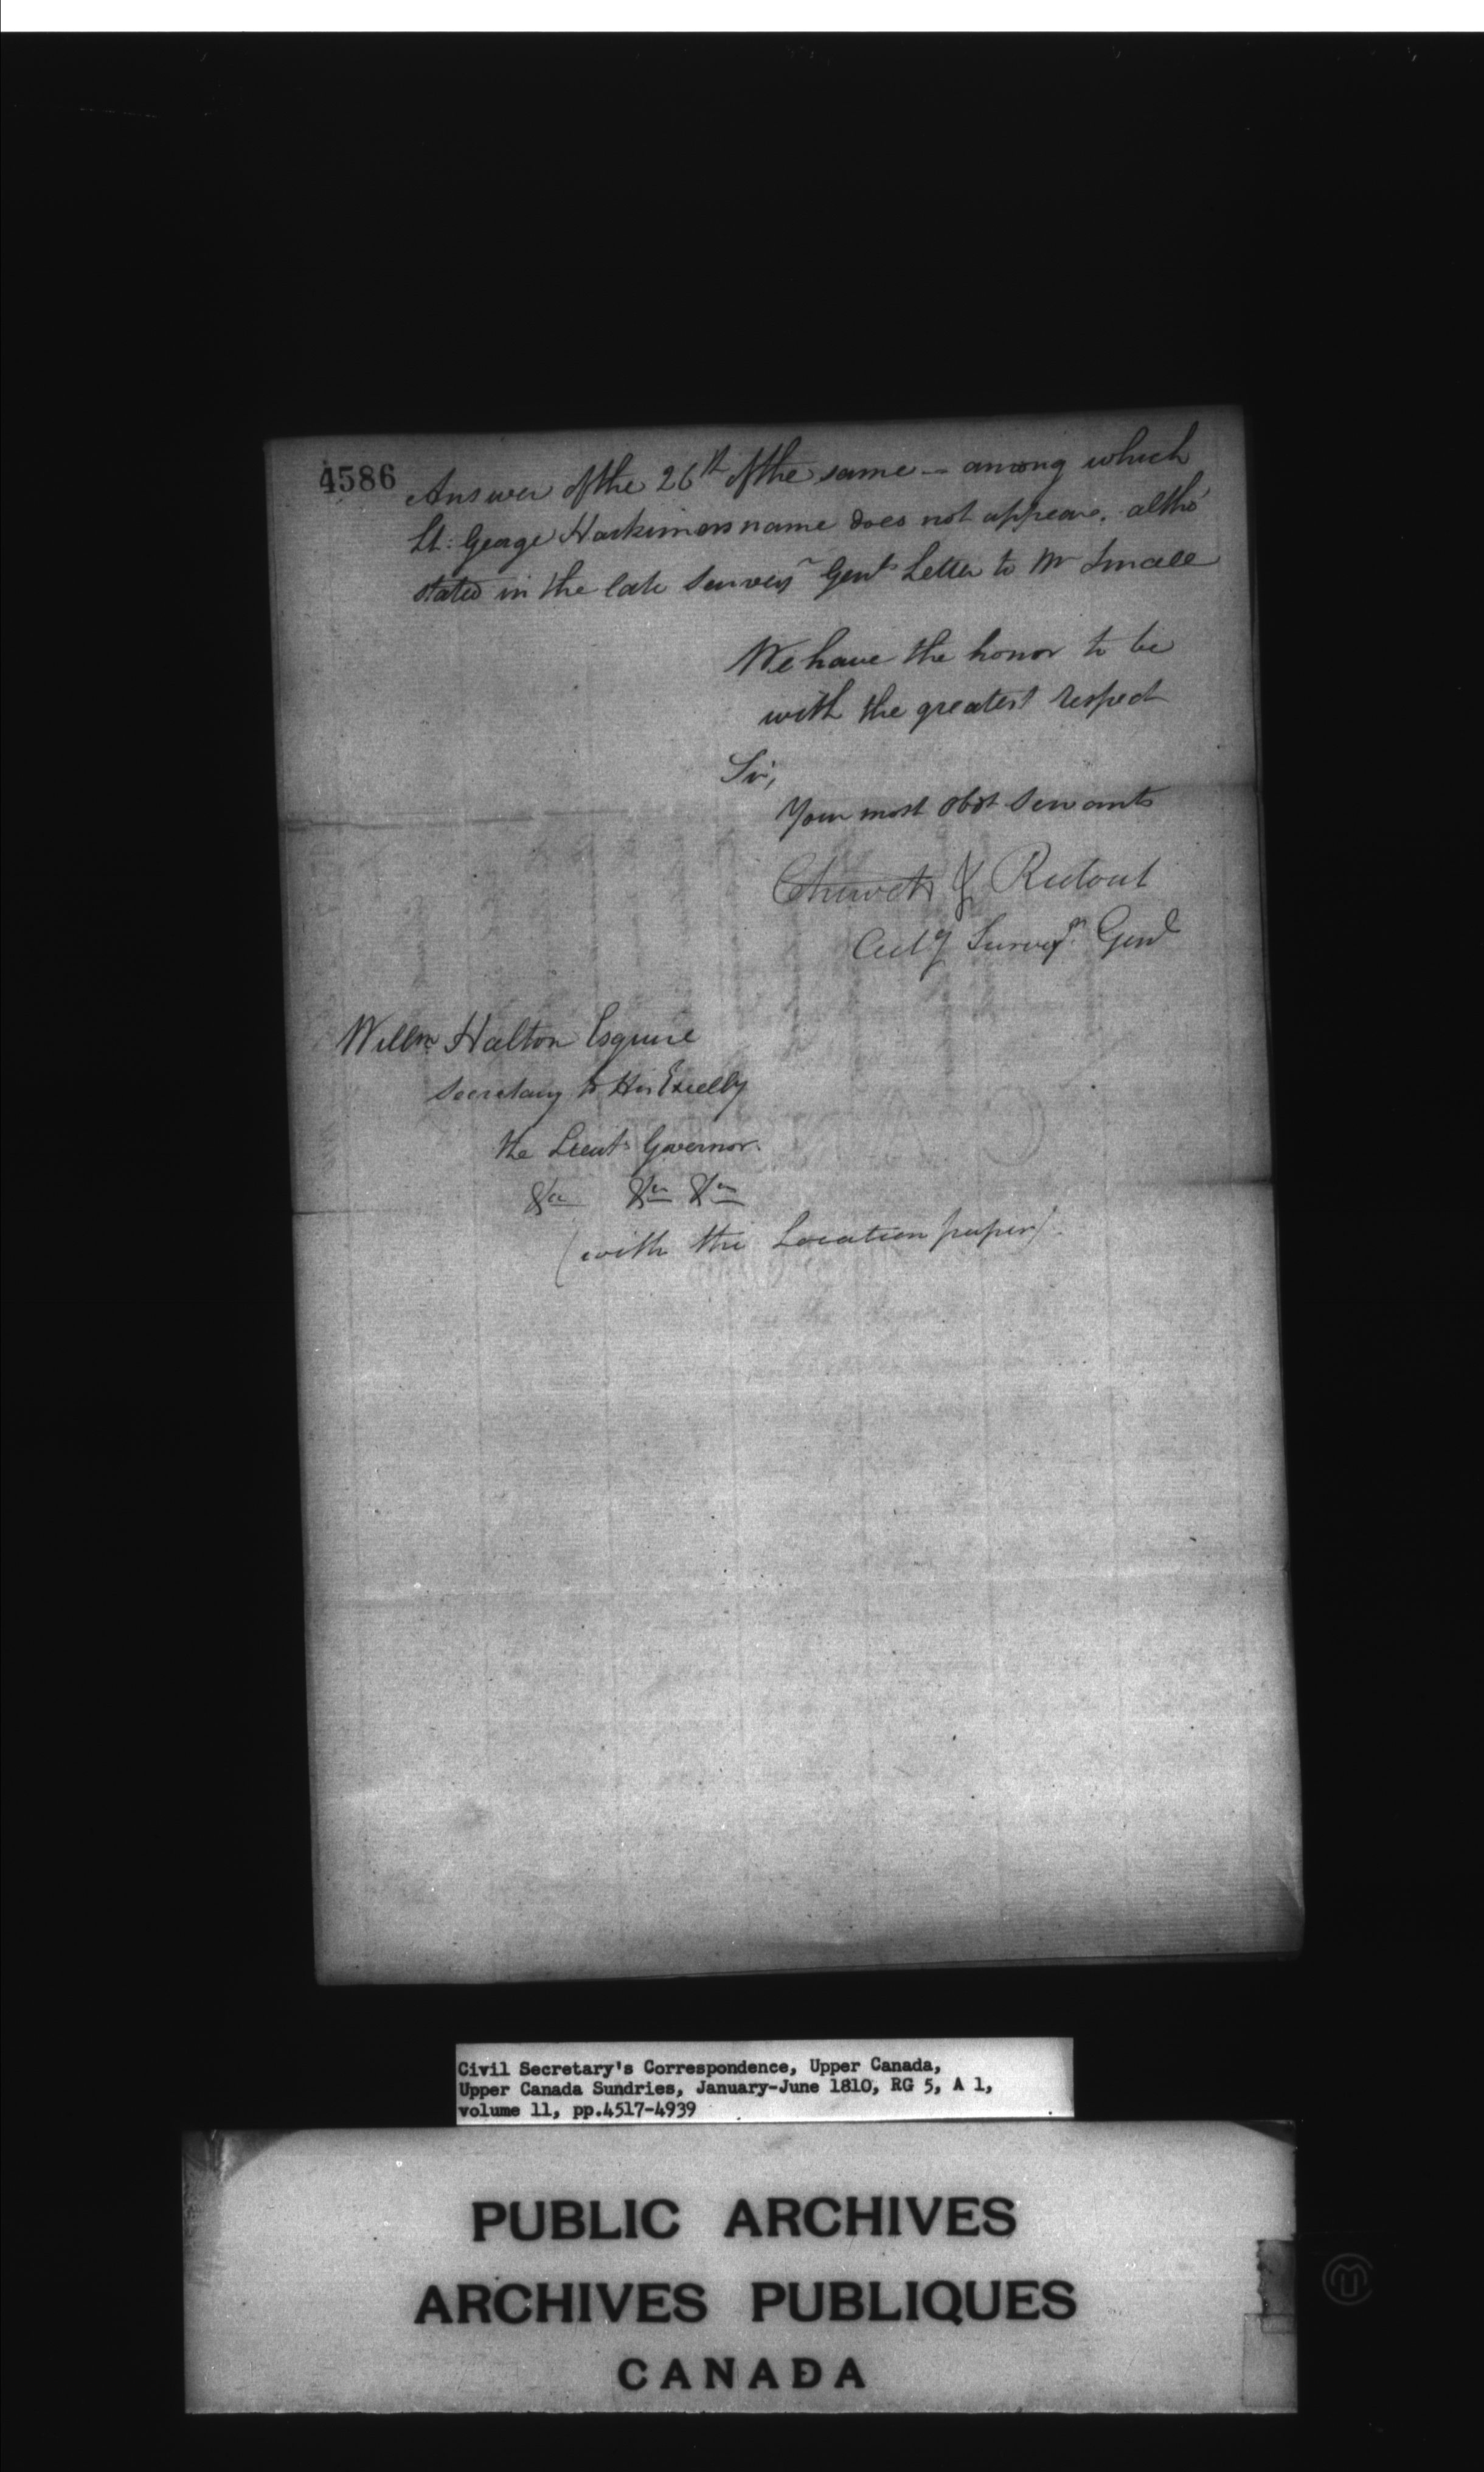 4586
Answer of the 26th of the same — among which
Lt: George Harkimers name does not appear. altho'
stated in the late Surveyr Genls Letter to Mr Small
We have the honor to be
with the greatest respect
Sir,
Your most obdt Servants
Chewett & Ridout
Actg Surveyr. Genl
Willm Halton Esquire
Secretary to His Excelly
the Lieut: Governor.
&ca &ca &ca
(with the Location paper).
Civil Secretary's Correspondence, Upper Canada,
Upper Canada Sundries, January-June 1810, RG 5, A 1,
volume 11, pp.4517-4939
PUBLIC ARCHIVES
ARCHIVES PUBLIQUES
CANADA